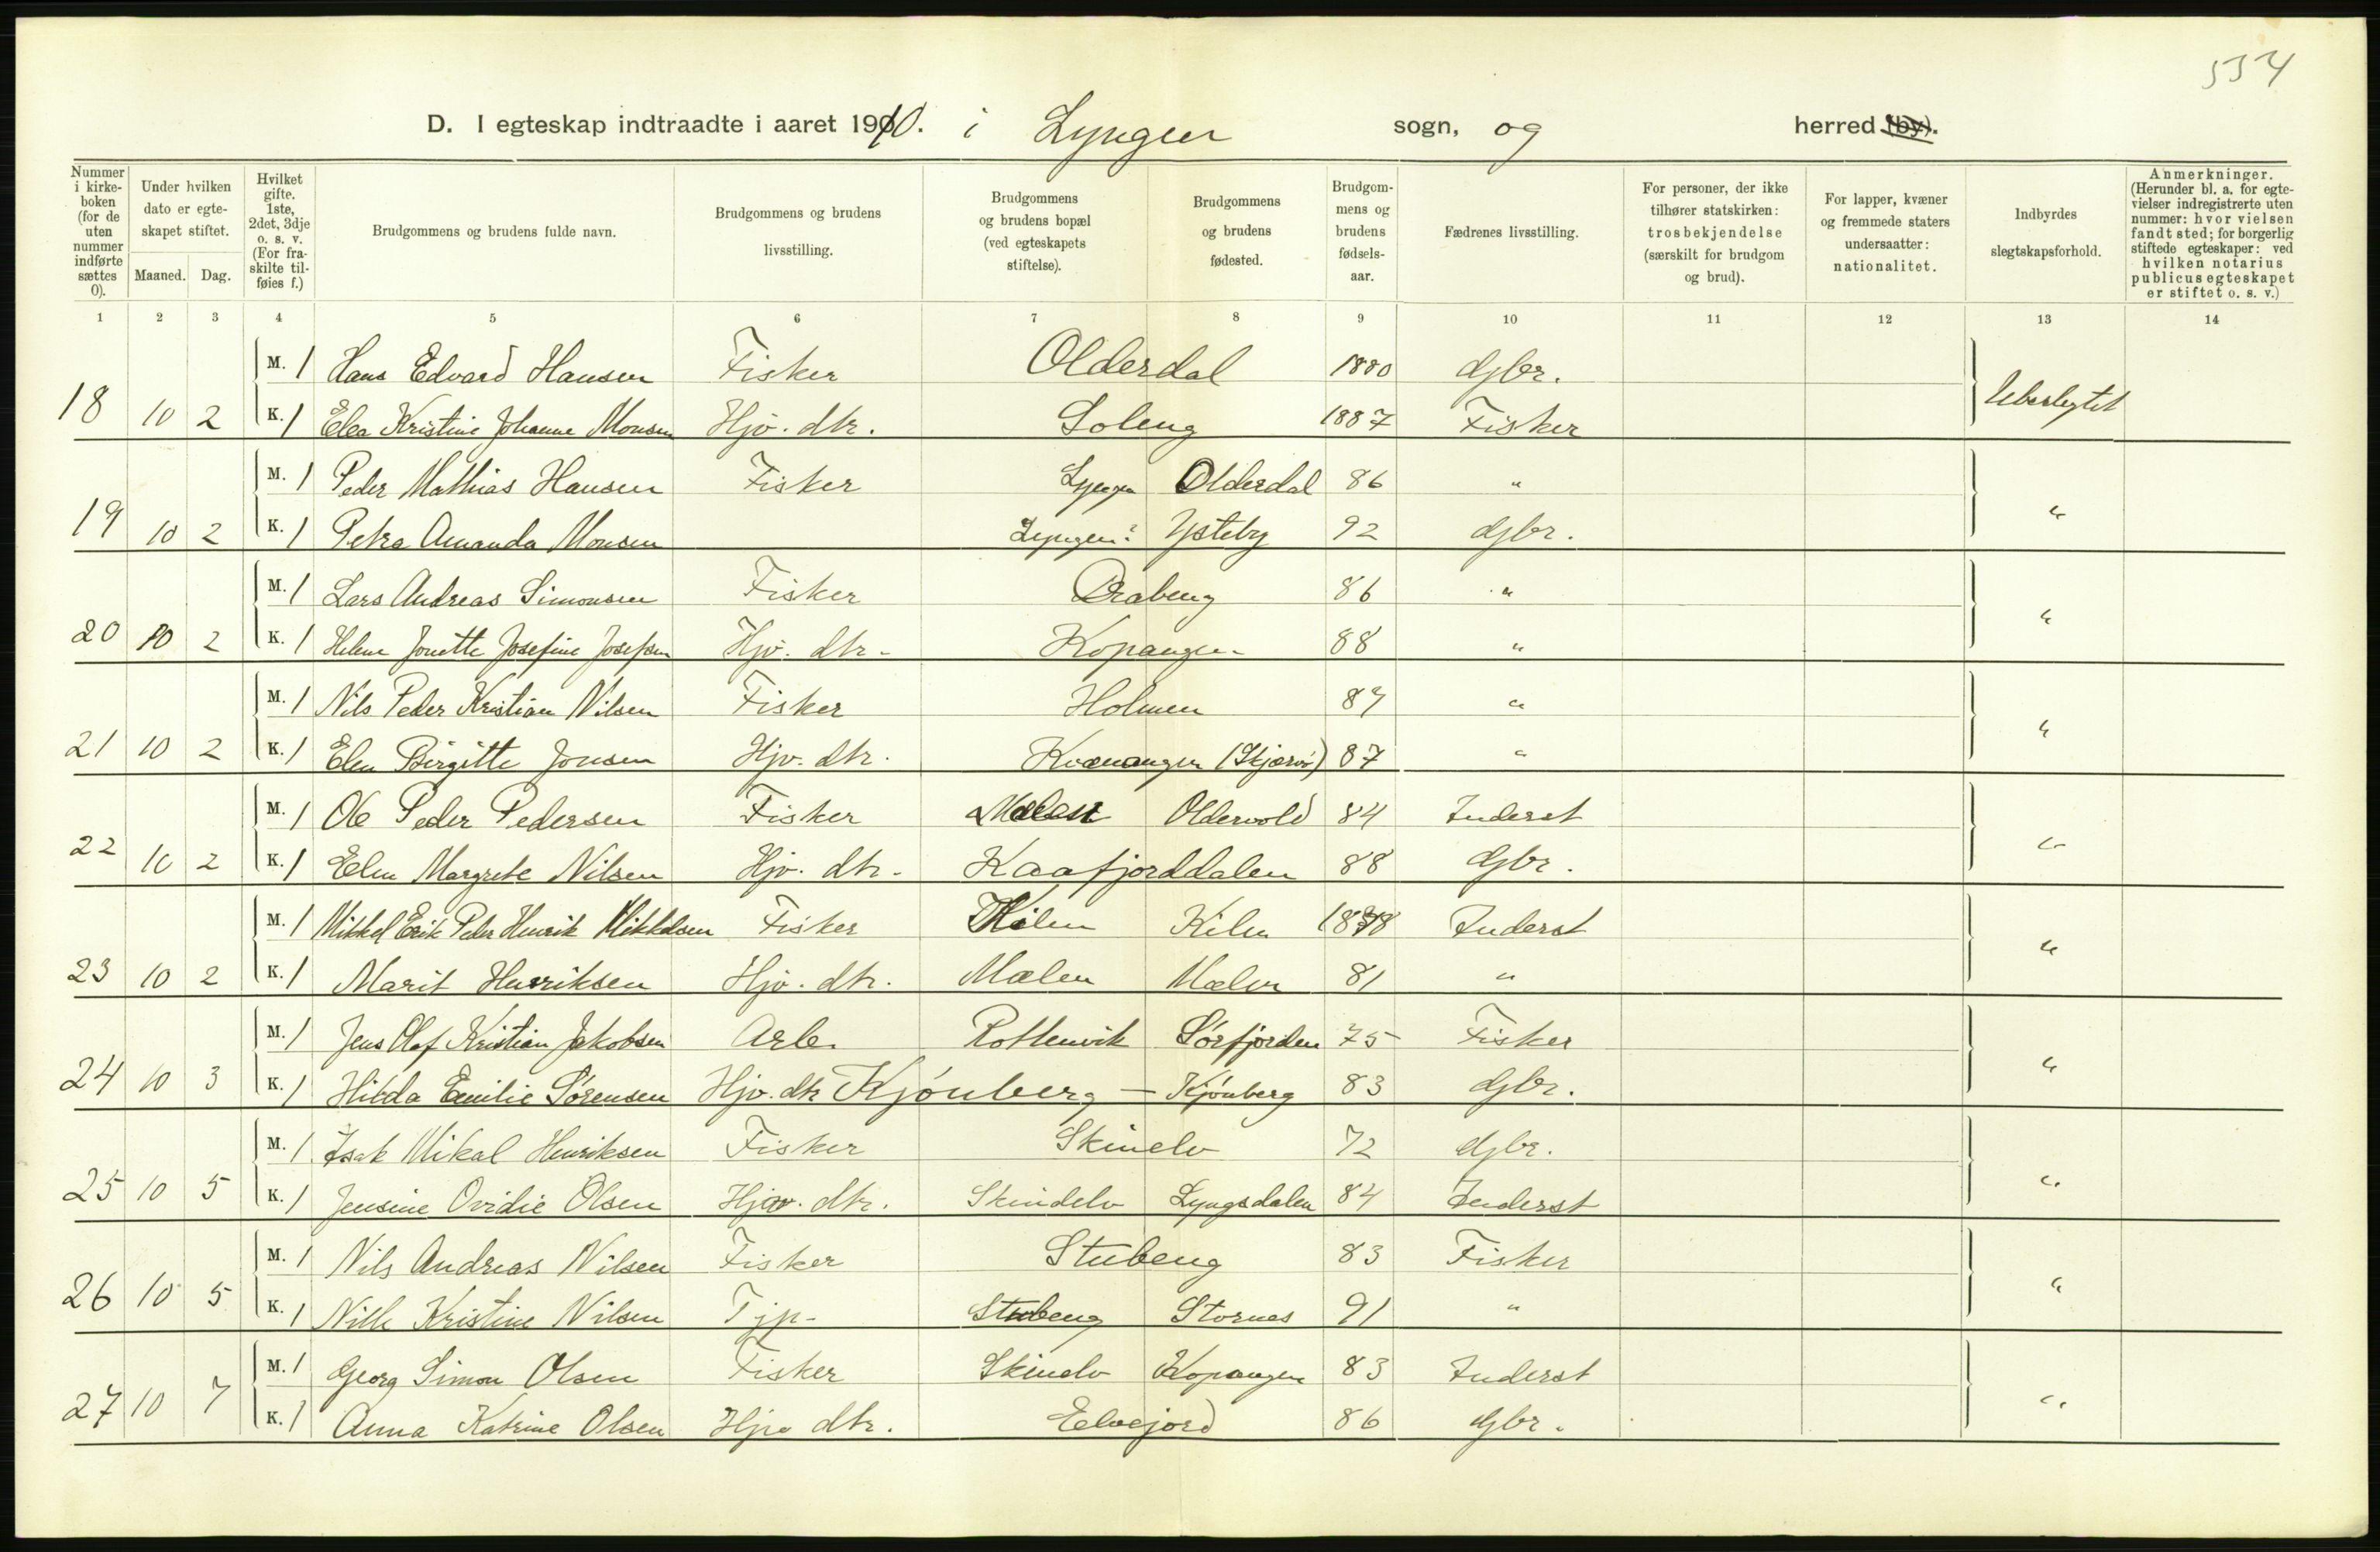 534
D. I egteskap indtraadte i aaret 1910. i Lyngen sogn, og herred (by).
Nummer i kirkeboken (for de uten nummer indførte sættes 0). Under hvilken dato er egteskapet stiftet. Maaned. Dag. Hvilket gifte. 1ste, 2det, 3dje o. s. v. (For fraskilte tilføies f.) Brudgommens og brudens fulde navn. Brudgommens og brudens livsstilling. Brudgommens og brudens bopæl (ved egteskapets stiftelse). Brudgommens og brudens fødested. Brudgommens og brudens fødselsaar. Fædrenes livsstilling. For personer, der ikke tilhører statskirken: trosbekjendelse (særskilt for brudgom og brud). For lapper, kvæner og fremmede staters undersaatter: nationalitet. Indbyrdes slegtskapsforhold. Anmerkninger. (Herunder bl. a. for egtevielser indregistrerte uten nummer: hvor vielsen fandt sted; for borgerlig stiftede egteskaper: ved hvilken notarius publicus egteskapet er stiftet o. s. v.)
1 2 3 4 5 6 7 8 9 10 11 12 13 14
M. 1 Hans Edvard Hansen Fisker Olderdal 1880 Gbr.
18 10 2 K. 1 Elea Kristine Johanne Monsen Hjv. dtr. Soleng 1887 Fisker Ubeslegtet
M. 1 Peder Mathias Hansen Fisker Lyngen Olderdal 86 "
19 10 2 K. 1 Petra Amanda Monsen Lyngen? Ysteby 92 Gbr. "
M. 1 Lars Andreas Simonsen Fisker Drabeng 86 "
20 10 2 K. 1 Helene Jonette Josefine Josefsen Hjv. dtr. Kopangen 88 " "
M. 1 Nils Peder Kristian Nilsen Fisker Holmen 87 "
21 10 2 K. 1 Elen Birgitte Jonsen Hjv. dtr. Kvænangen (Skjærvø) 87 " "
M. 1 Ole Peder Pedersen Fisker Mælen Oldervold 84 Inderst
22 10 2 K. 1 Elen Margrete Nilsen Hjv. dtr. Kaafjorddalen 88 Gbr. "
M. 1 Mikkel Erik Peder Henrik Mikkelsen Fisker Kilen Kilen 1878 Inderst
23 10 2 K. 1 Marit Henriksen Hjv. dtr. Mælen Mælen 81 " "
M. 1 Jens Olaf Kristian Jakobsen Arb. Rottenvik Sørfjorden 75 Fisker
24 10 3 K. 1 Hilda Emilie Sørensen Hjv. dtr Kjønberg — Kjønberg 83 Gbr. "
M. 1 Isak Mikal Henriksen Fisker Skinelv 72 Gbr.
25 10 5 K. 1 Jensine Ovidie Olsen Hjv. dtr. Skindelv Lyngsdalen 84 Inderst "
M. 1 Nils Andreas Nilsen Fisker Stubeng 83 Fisker
26 10 5 K. 1 Nille Kristine Nilsen Tjp. Stubeng Stornes 91 " "
M. 1 Georg Simon Olsen Fisker Skinelv Kopangen 83 Inderst
27 10 7 K. 1 Anna Katrine Olsen Hjv dtr. Elvejord 86 Gbr. "